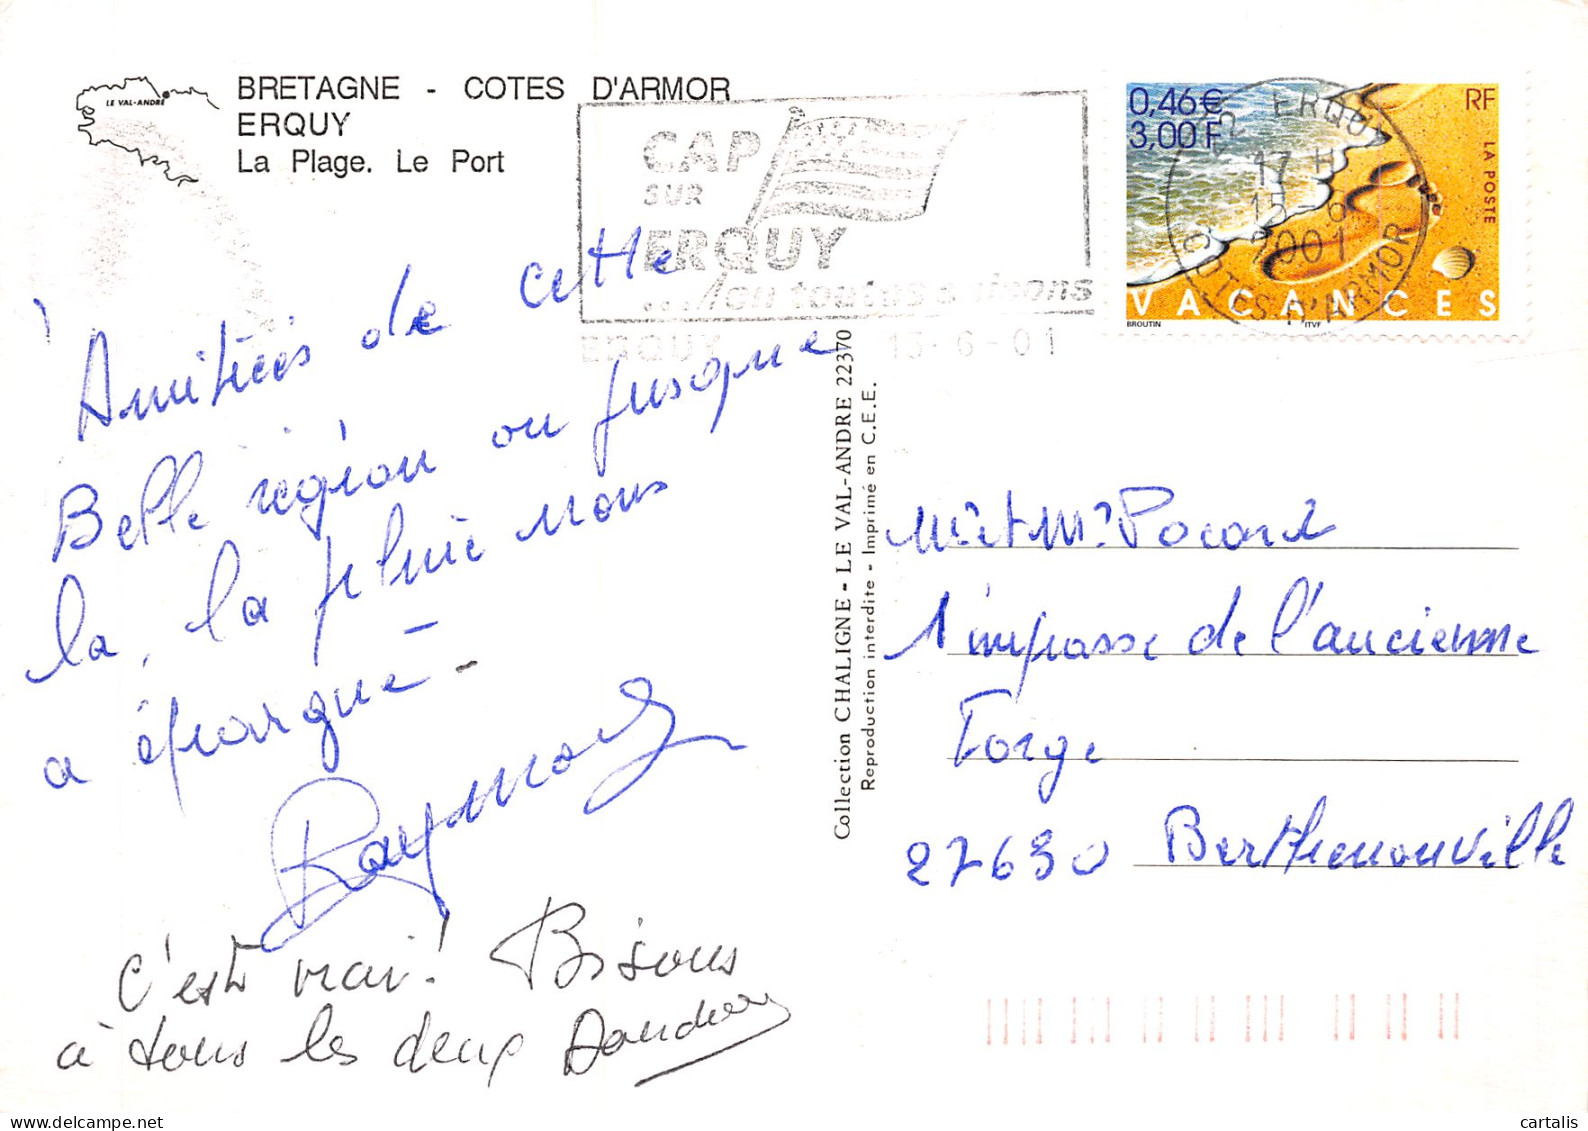 LE VAL-ANDRÉ
BRETAGNE - COTES D'ARMOR
ERQUY
La Plage. Le Port
CAP
SUR
ERQUY
... en toutes saisons
ERQUY 15-6-01
0,46 €
3,00 F
RF
LA POSTE
VACANCES
BROUTIN
ITVF
22 ERQUY
17 H
15-6
2001
COTES D'ARMOR
Amitiés de cette
Belle région ou jusque
la, la pluie nous
a épargné -
Raymond
C'est vrai! Bisous
à tous les deux
Collection CHALIGNE - LE VAL-ANDRE 22370
Reproduction interdite - Imprimé en C.E.E.
Mr et Mme Pocard
1 impasse de l'ancienne
Forge
27630 Berthenonville
cartalis